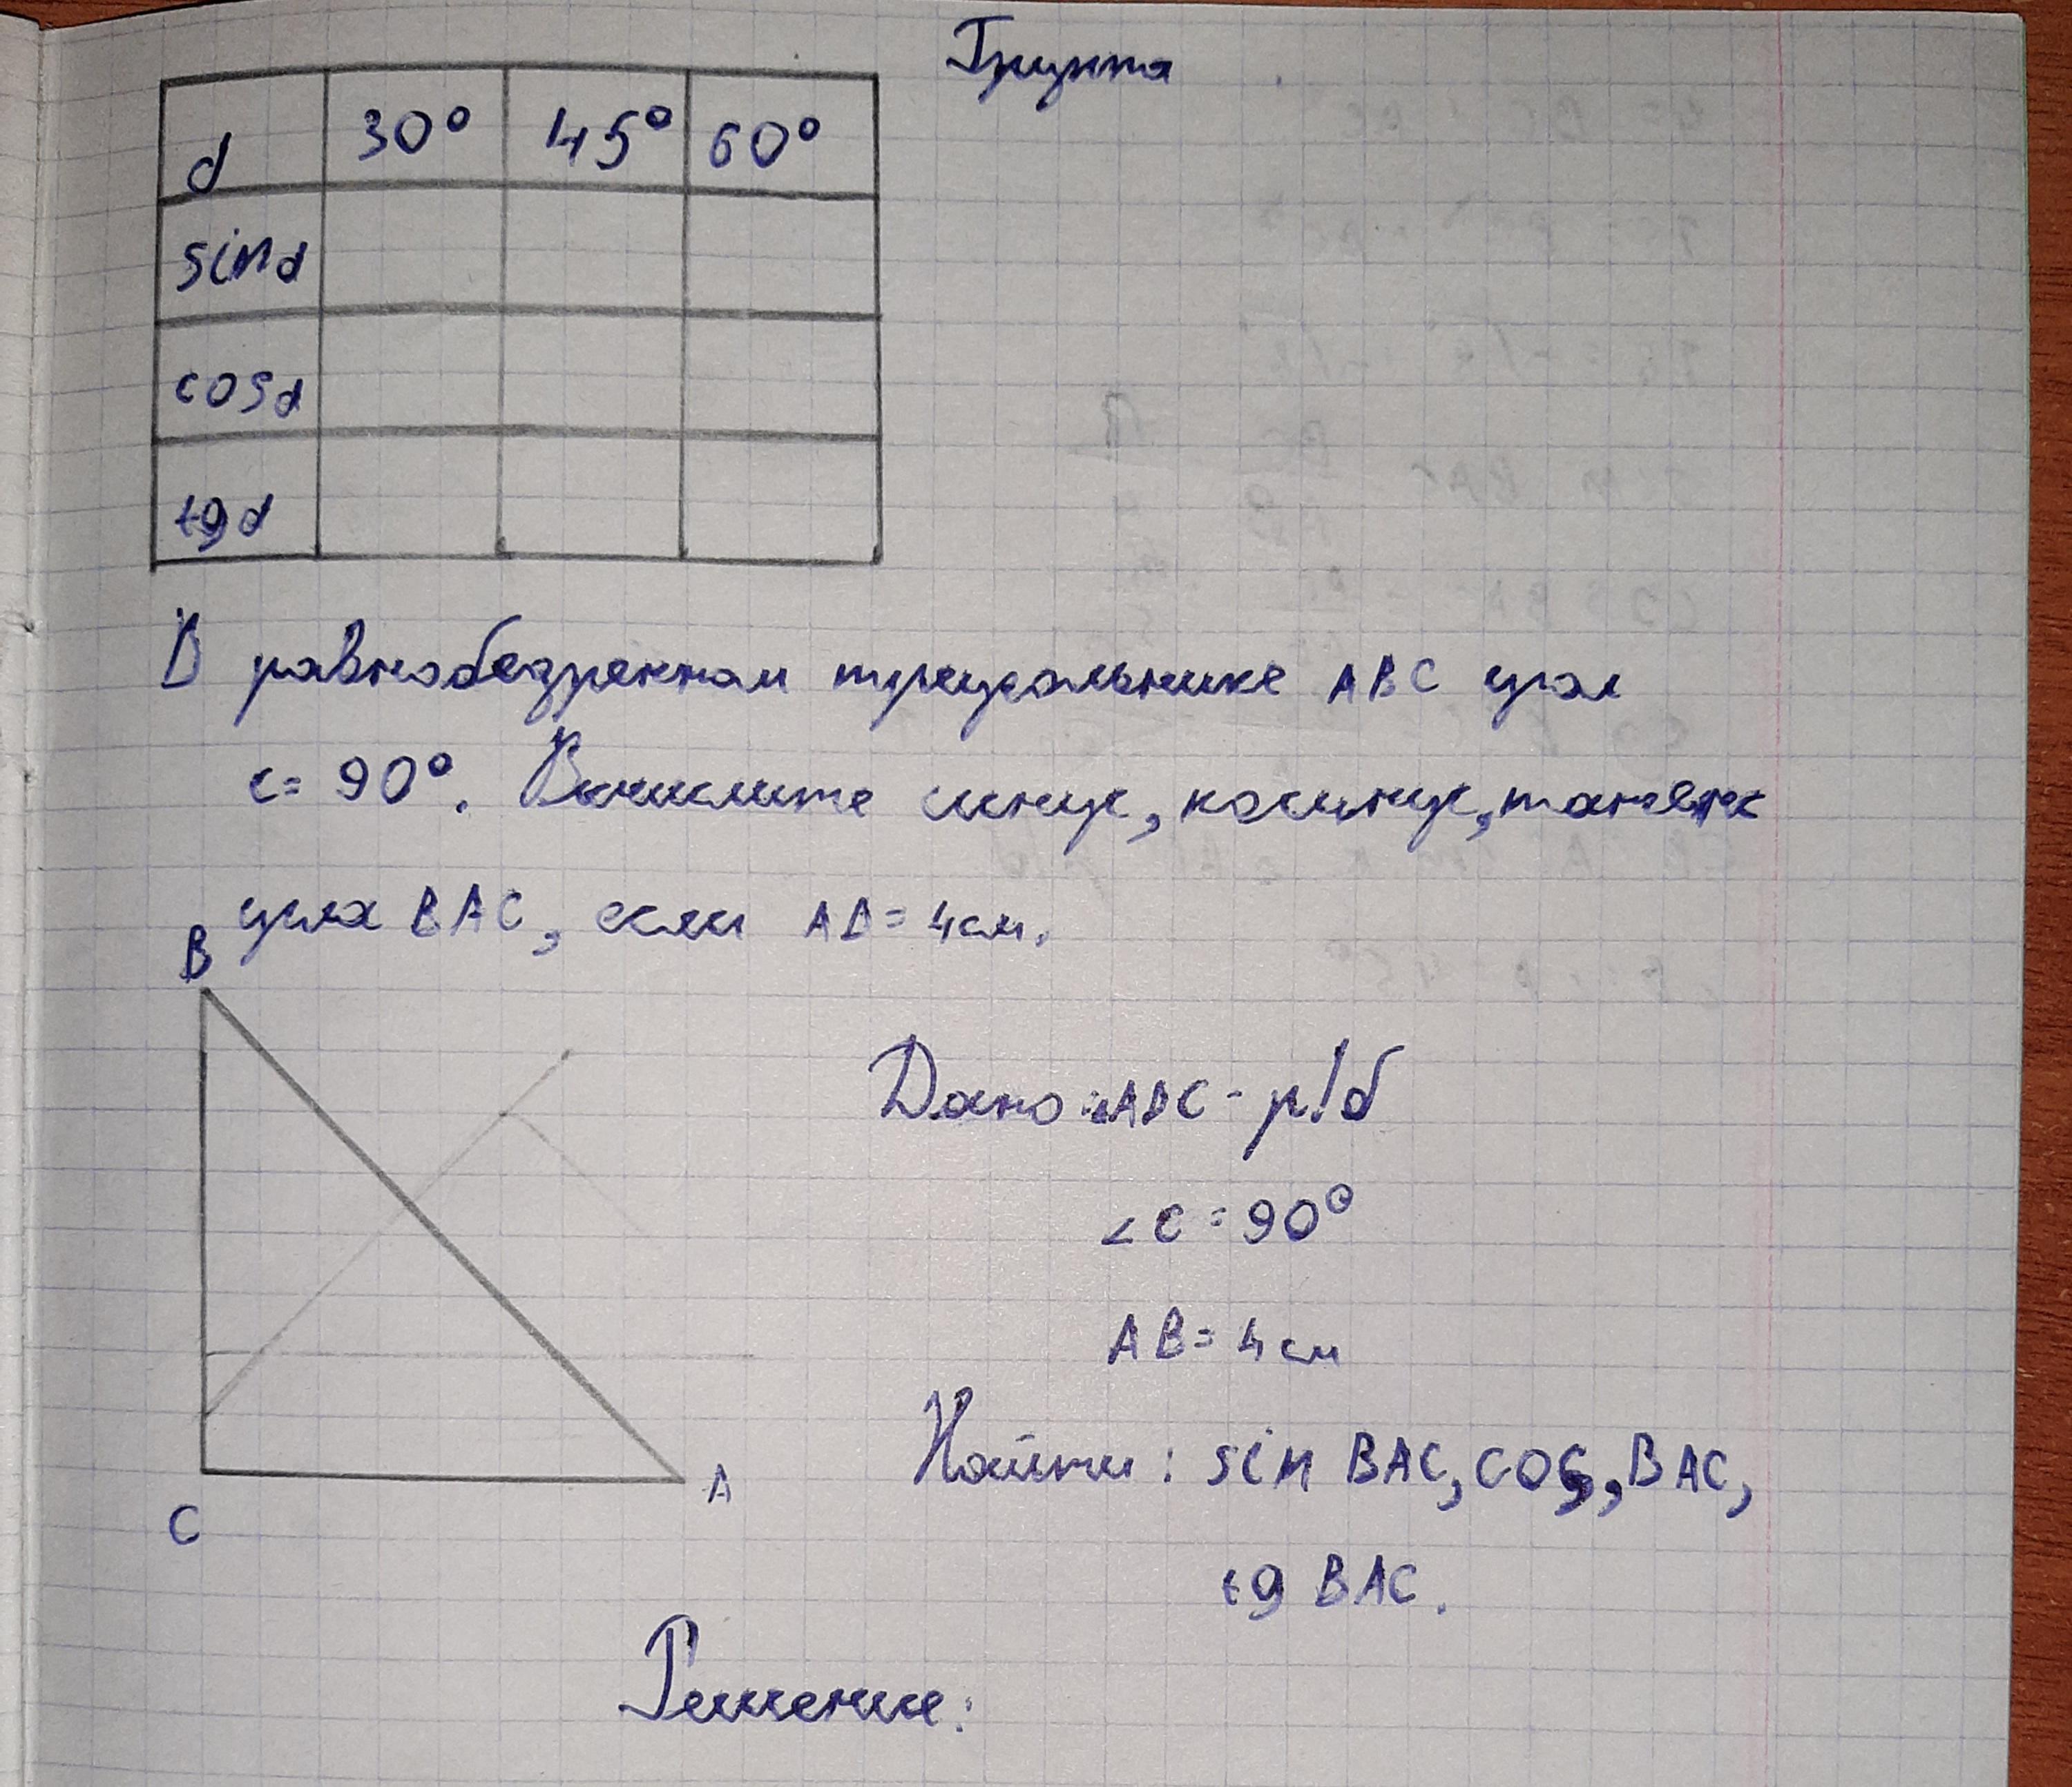 Группа
α 30° 45° 60°
sinα
cosα
tgα
В равнобедренном треугольнике ABC угол
C = 90°. Вычислите синус, косинус, тангенс
угла BAC, если AB = 4 см.
B
C
A
Дано: ABC - р/б
∠C = 90°
AB = 4 см
Найти: sin BAC, cos, BAC,
tg BAC.
Решение: